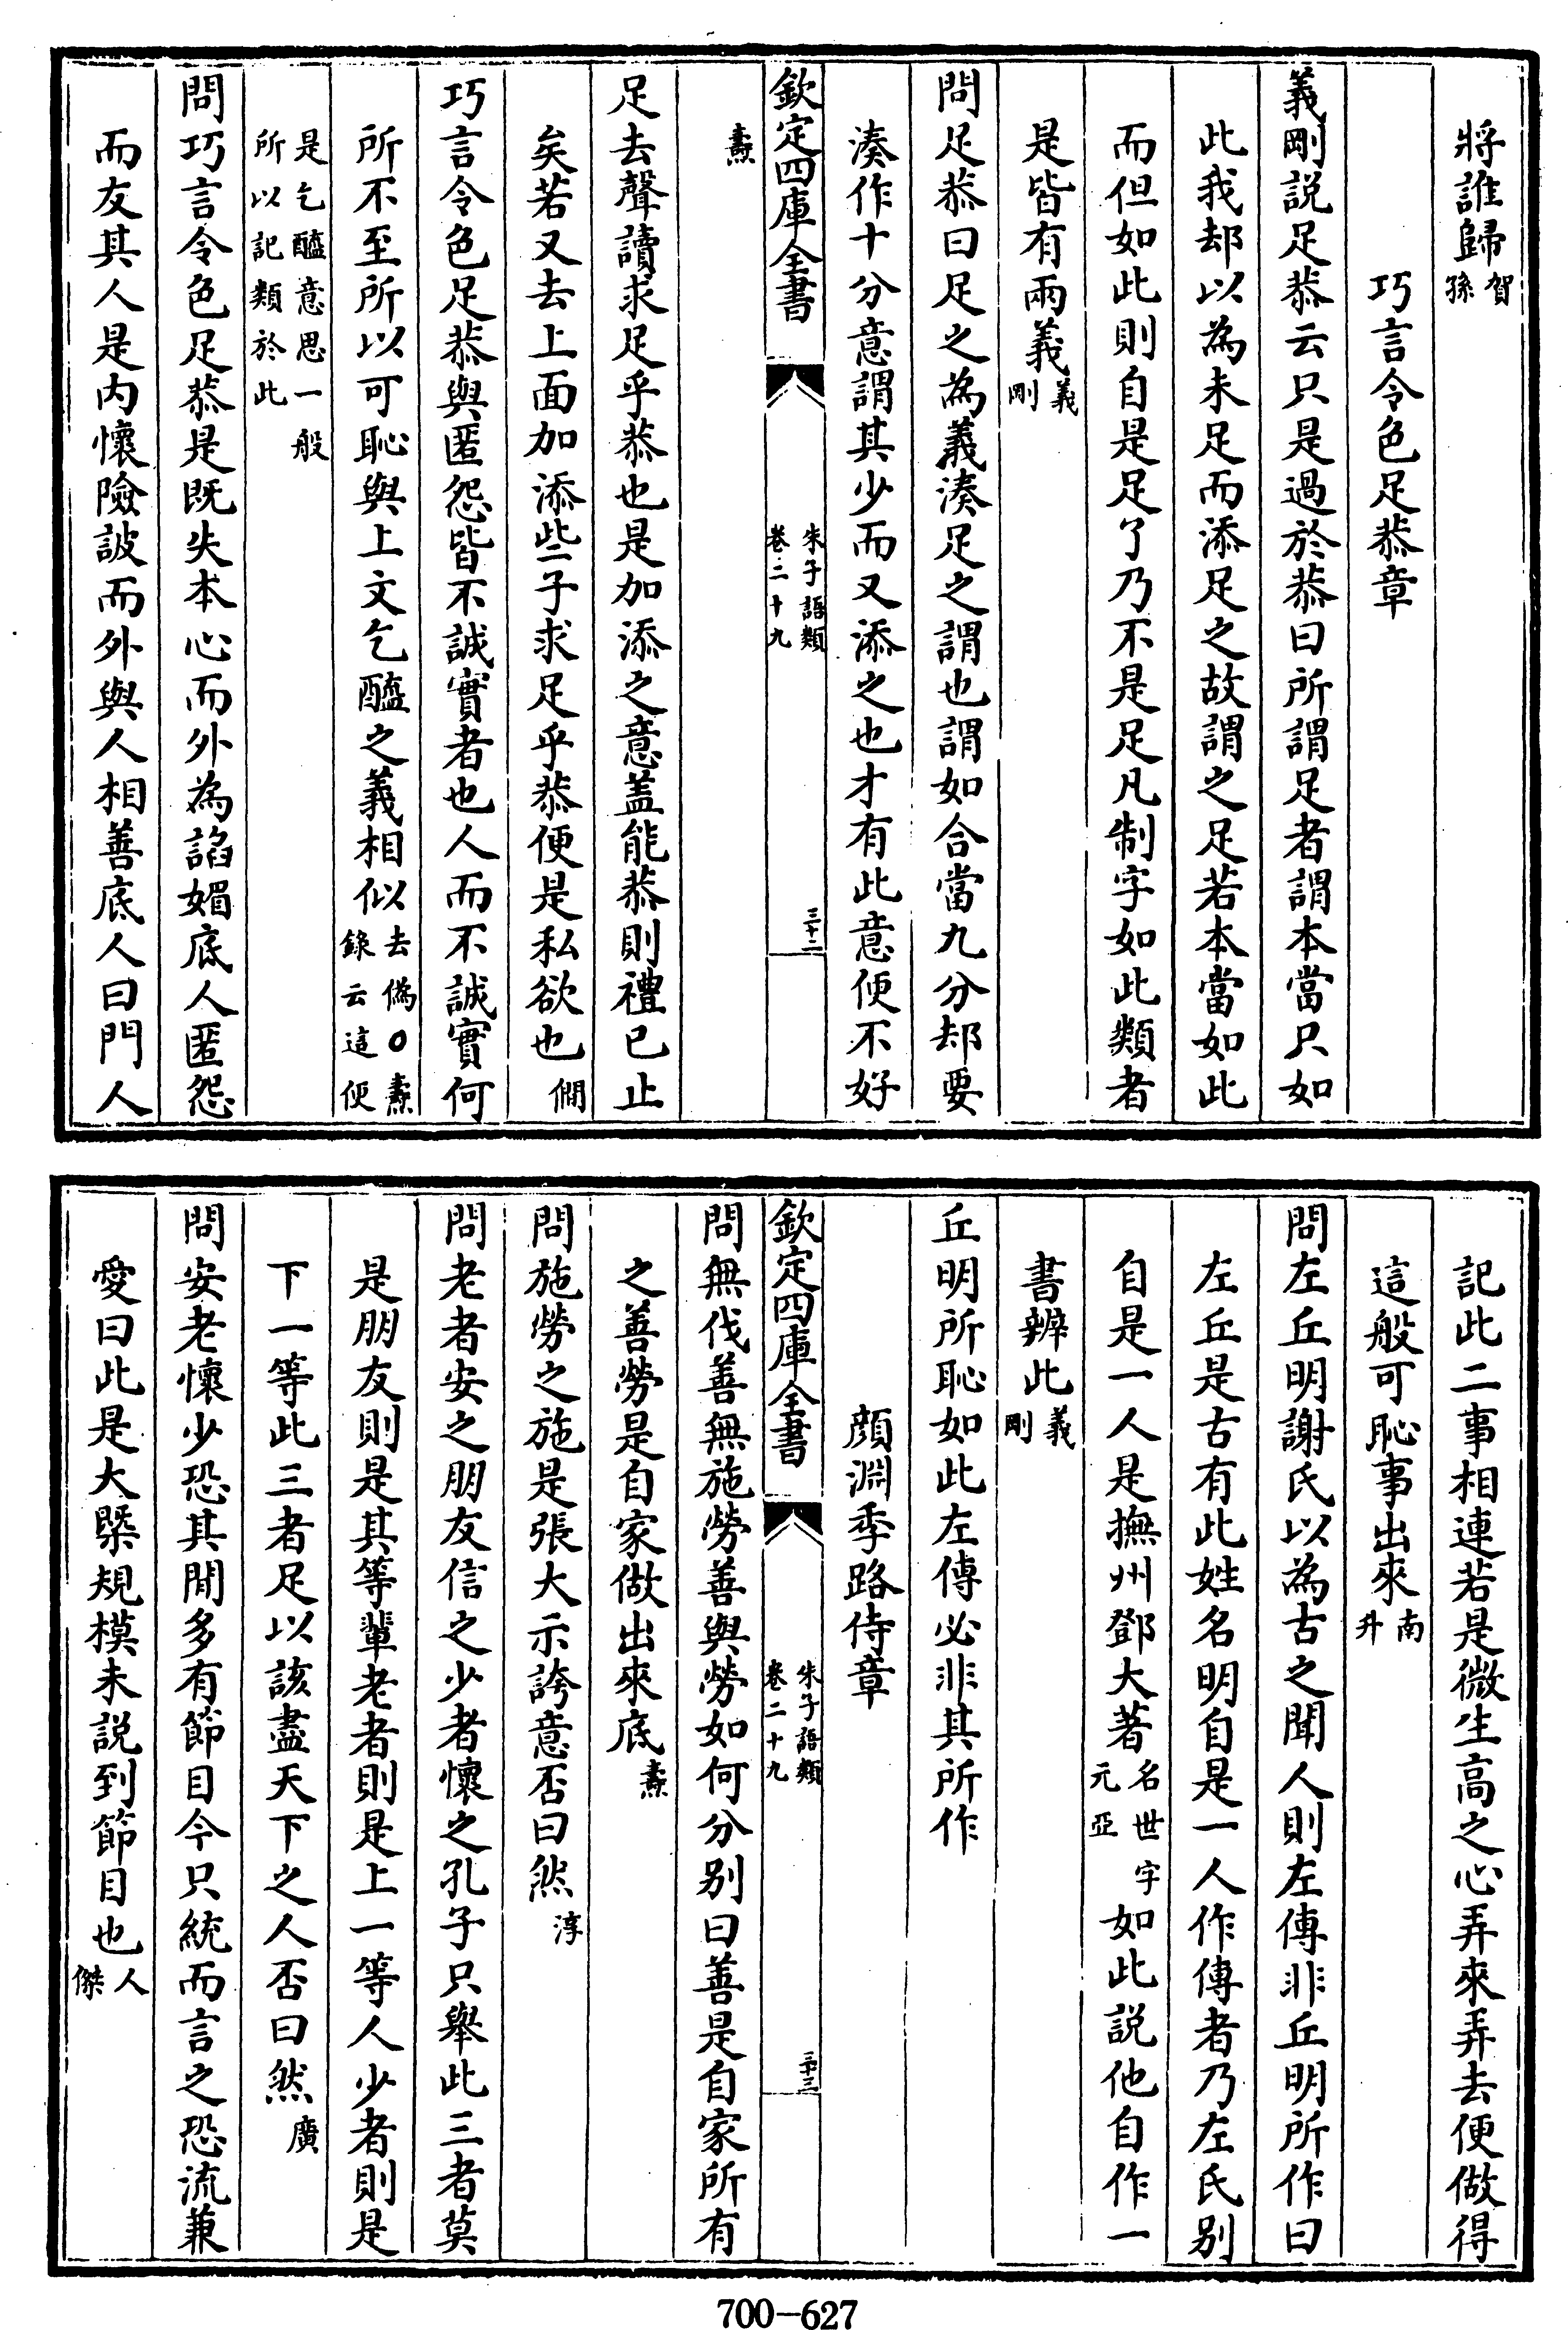 將誰歸賀孫
巧言令色足恭章
義剛説足恭云只是過於恭曰所謂足者謂本當只如
此我却以為未足而添足之故謂之足若本當如此
而但如此則自是足了乃不是足凡制字如此類者
是皆有兩義義剛
問足恭曰足之為義湊足之謂也謂如合當九分却要
湊作十分意謂其少而又添之也才有此意便不好
欽定四庫全書
朱子語類
卷二十九
三十二
燾
足去聲讀求足乎恭也是加添之意盖能恭則禮已止
矣若又去上面加添些子求足乎恭便是私欲也僩
巧言令色足恭與匿怨皆不誠實者也人而不誠實何
所不至所以可恥與上文乞醯之義相似去偽○燾録云這便
是乞醯意思一般所以記類於此
問巧言令色足恭是既失本心而外為諂媚底人匿怨
而友其人是内懷險詖而外與人相善底人曰門人
記此二事相連若是微生高之心弄來弄去便做得
這般可恥事出來南升
問左丘明謝氏以為古之聞人則左傳非丘明所作曰
左丘是古有此姓名明自是一人作傳者乃左氏别
自是一人是撫州鄧大著名世字元亞如此説他自作一
書辨此義剛
丘明所恥如此左傳必非其所作
顔淵季路侍章
欽定四庫全書
朱子語類
卷二十九
三十三
問無伐善無施勞善與勞如何分别曰善是自家所有
之善勞是自家做出來底燾
問施勞之施是張大示誇意否曰然淳
問老者安之朋友信之少者懷之孔子只舉此三者莫
是朋友則是其等輩老者則是上一等人少者則是
下一等此三者足以該盡天下之人否曰然廣
問安老懷少恐其間多有節目今只統而言之恐流兼
愛曰此是大槩規模未説到節目也人傑
700-627